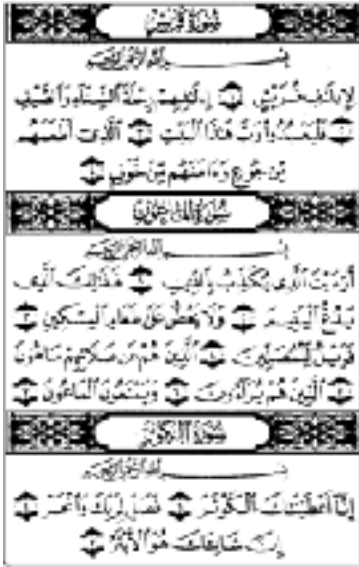 سُورَةُ قُرَيْشٍ
بِسْمِ اللَّهِ الرَّحْمَٰنِ الرَّحِيمِ
لِإِيلَافِ قُرَيْشٍ ۝١ إِيلَافِهِمْ رِحْلَةَ الشِّتَاءِ وَالصَّيْفِ
۝٢ فَلْيَعْبُدُوا رَبَّ هَٰذَا الْبَيْتِ ۝٣ الَّذِي أَطْعَمَهُم
مِّن جُوعٍ وَءَامَنَهُم مِّنْ خَوْفٍ ۝٤
سُورَةُ الْمَاعُونِ
بِسْمِ اللَّهِ الرَّحْمَٰنِ الرَّحِيمِ
أَرَءَيْتَ الَّذِي يُكَذِّبُ بِالدِّينِ ۝١ فَذَٰلِكَ الَّذِي
يَدُعُّ الْيَتِيمَ ۝٢ وَلَا يَحُضُّ عَلَىٰ طَعَامِ الْمِسْكِينِ ۝٣
فَوَيْلٌ لِّلْمُصَلِّينَ ۝٤ الَّذِينَ هُمْ عَن صَلَاتِهِمْ سَاهُونَ
۝٥ الَّذِينَ هُمْ يُرَاءُونَ ۝٦ وَيَمْنَعُونَ الْمَاعُونَ ۝٧
سُورَةُ الْكَوْثَرِ
بِسْمِ اللَّهِ الرَّحْمَٰنِ الرَّحِيمِ
إِنَّا أَعْطَيْنَاكَ الْكَوْثَرَ ۝١ فَصَلِّ لِرَبِّكَ وَانْحَرْ ۝٢
إِنَّ شَانِئَكَ هُوَ الْأَبْتَرُ ۝٣